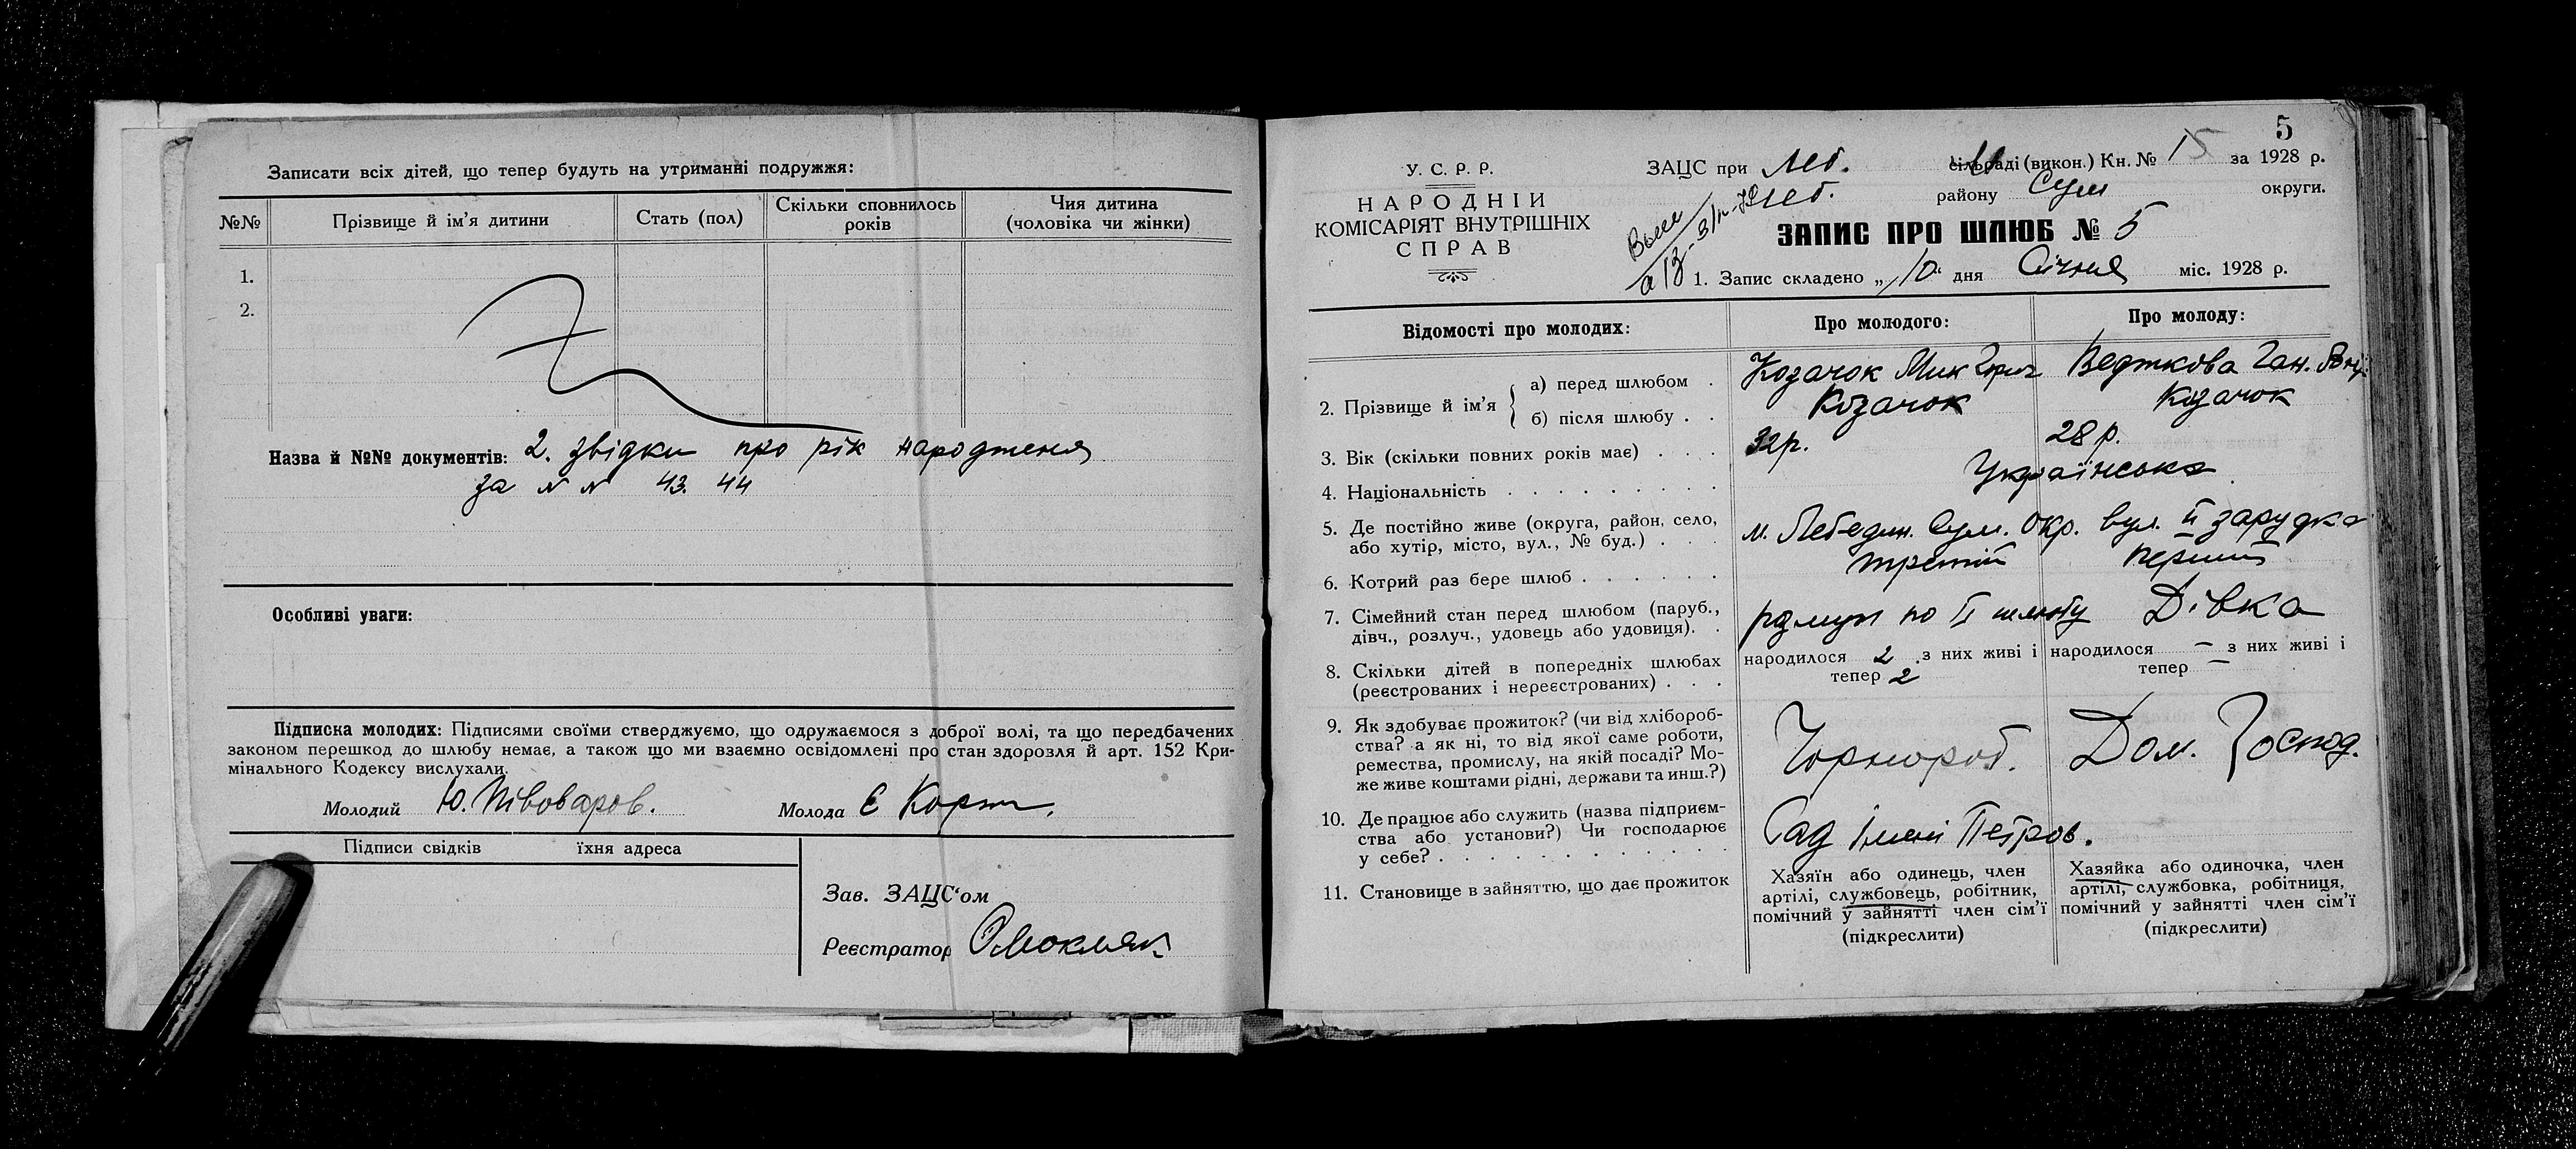 Записати всіх дітей, що тепер будуть на утриманні подружжя:
№№ Прізвище й ім'я дитини Стать (пол) Скільки сповнилось років Чия дитина (чоловіка чи жінки)
1.
2.
Назва й №№ документів: 2. звідки про рік народженя
за N N 43. 44
Особливі уваги:
Підписка молодих: Підписями своїми стверджуємо, що одружаємося з доброї волі, та що передбачених
законом перешкод до шлюбу немає, а також що ми взаємно освідомлені про стан здоровля й арт. 152 Кри-
мінального Кодексу вислухали.
Молодий Ю. Півоваров. Молода Є Корж
Підписи свідків їхня адреса
Зав. ЗАЦС'ом
Реєстратор
5
У. С. Р. Р.
НАРОДНІЙ
КОМІСАРІЯТ ВНУТРІШНІХ
СПРАВ
ЗАЦС при Леб. сільраді (викон.) Кн. № 15 за 1928 р.
Леб. району Сум округи.
ЗАПИС ПРО ШЛЮБ № 5
1. Запис складено „10" дня Січня міс. 1928 р.
Відомості про молодих: Про молодого: Про молоду:
2. Прізвище й ім'я
а) перед шлюбом Козачок Мик
б) після шлюбу Козачок Козачок
3. Вік (скільки повних років має) 32р. 28 р.
4. Національність Українська
5. Де постійно живе (округа, район, село,
або хутір, місто, вул., № буд.) м. Лебедин. Сум. Окр. вул. II зарудка
6. Котрий раз бере шлюб третій перший
7. Сімейний стан перед шлюбом (паруб.,
дівч., розлуч., удовець або удовиця). по II шлюбу Дівка
8. Скільки дітей в попередніх шлюбах
(реєстрованих і нереєстрованих)
народилося 2 з них живі і
тепер 2
народилося — з них живі і
тепер —
9. Як здобуває прожиток? (чи від хлібороб-
ства? а як ні, то від якої саме роботи,
ремества, промислу, на якій посаді? Мо-
же живе коштами рідні, держави та инш.?)
Чорнороб. Дом. Господ.
10. Де працює або служить (назва підприєм-
ства або установи?) Чи господарює
у себе?
Сад імені Петров.
11. Становище в зайняттю, що дає прожиток
Хазяїн або одинець, член
артілі, службовець, робітник,
помічний у зайнятті член сім'ї
(підкреслити)
Хазяйка або одиночка, член
артілі, службовка, робітниця,
помічний у зайнятті член сім'ї
(підкреслити)